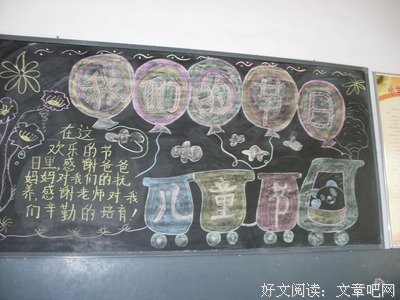 我们的节日
在这
欢乐的节
日里感谢爸爸
妈妈对我们的抚
养,感谢老师对我
们辛勤的培育!
儿童节
好文阅读:文章吧网